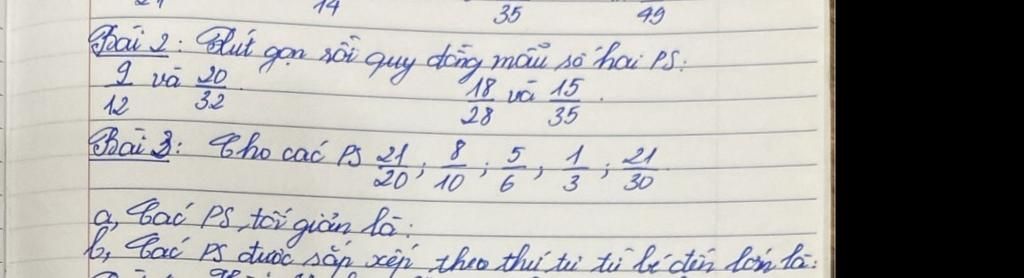 14 35 49
Bài 2: Rút gọn rồi quy đồng mẫu số hai PS:
9/12 và 20/32. 18/28 và 15/35.
Bài 3: Cho các PS 21/20; 8/10; 5/6; 1/3; 21/30
a, Các PS tối giản là:
b, Các PS được sắp xếp theo thứ tự từ bé đến lớn là: